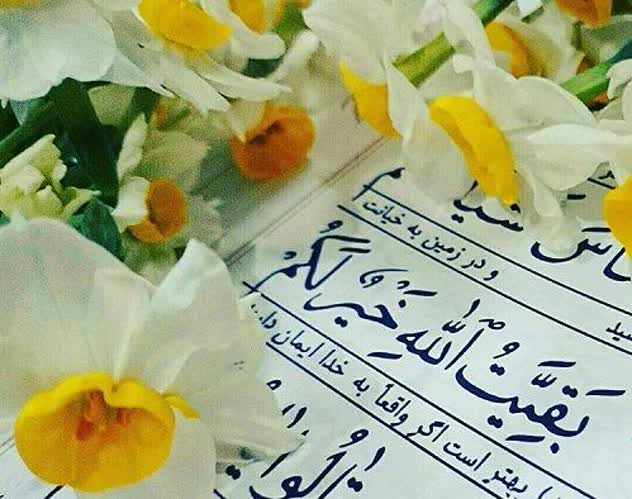 و در زمین به خیانت
بَقِيَّتُ اللّٰهِ خَيْرٌ لَكُمْ
) بهتر است اگر واقعاً به خدا ایمان
قالُوا